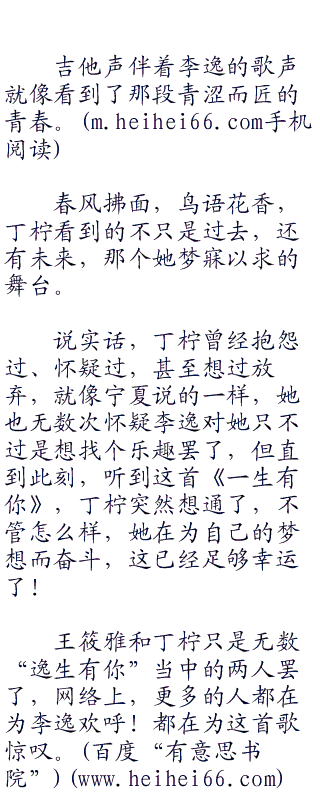 吉他声伴着李逸的歌声
就像看到了那段青涩而匠的
青春。(m.heihei66.com手机
阅读)
春风拂面，鸟语花香，
丁柠看到的不只是过去，还
有未来，那个她梦寐以求的
舞台。
说实话，丁柠曾经抱怨
过、怀疑过，甚至想过放
弃，就像宁夏说的一样，她
也无数次怀疑李逸对她只不
过是想找个乐趣罢了，但直
到此刻，听到这首《一生有
你》，丁柠突然想通了，不
管怎么样，她在为自己的梦
想而奋斗，这已经足够幸运
了！
王筱雅和丁柠只是无数
“逸生有你”当中的两人罢
了，网络上，更多的人都在
为李逸欢呼！都在为这首歌
惊叹。(百度“有意思书
院”)(www.heihei66.com)